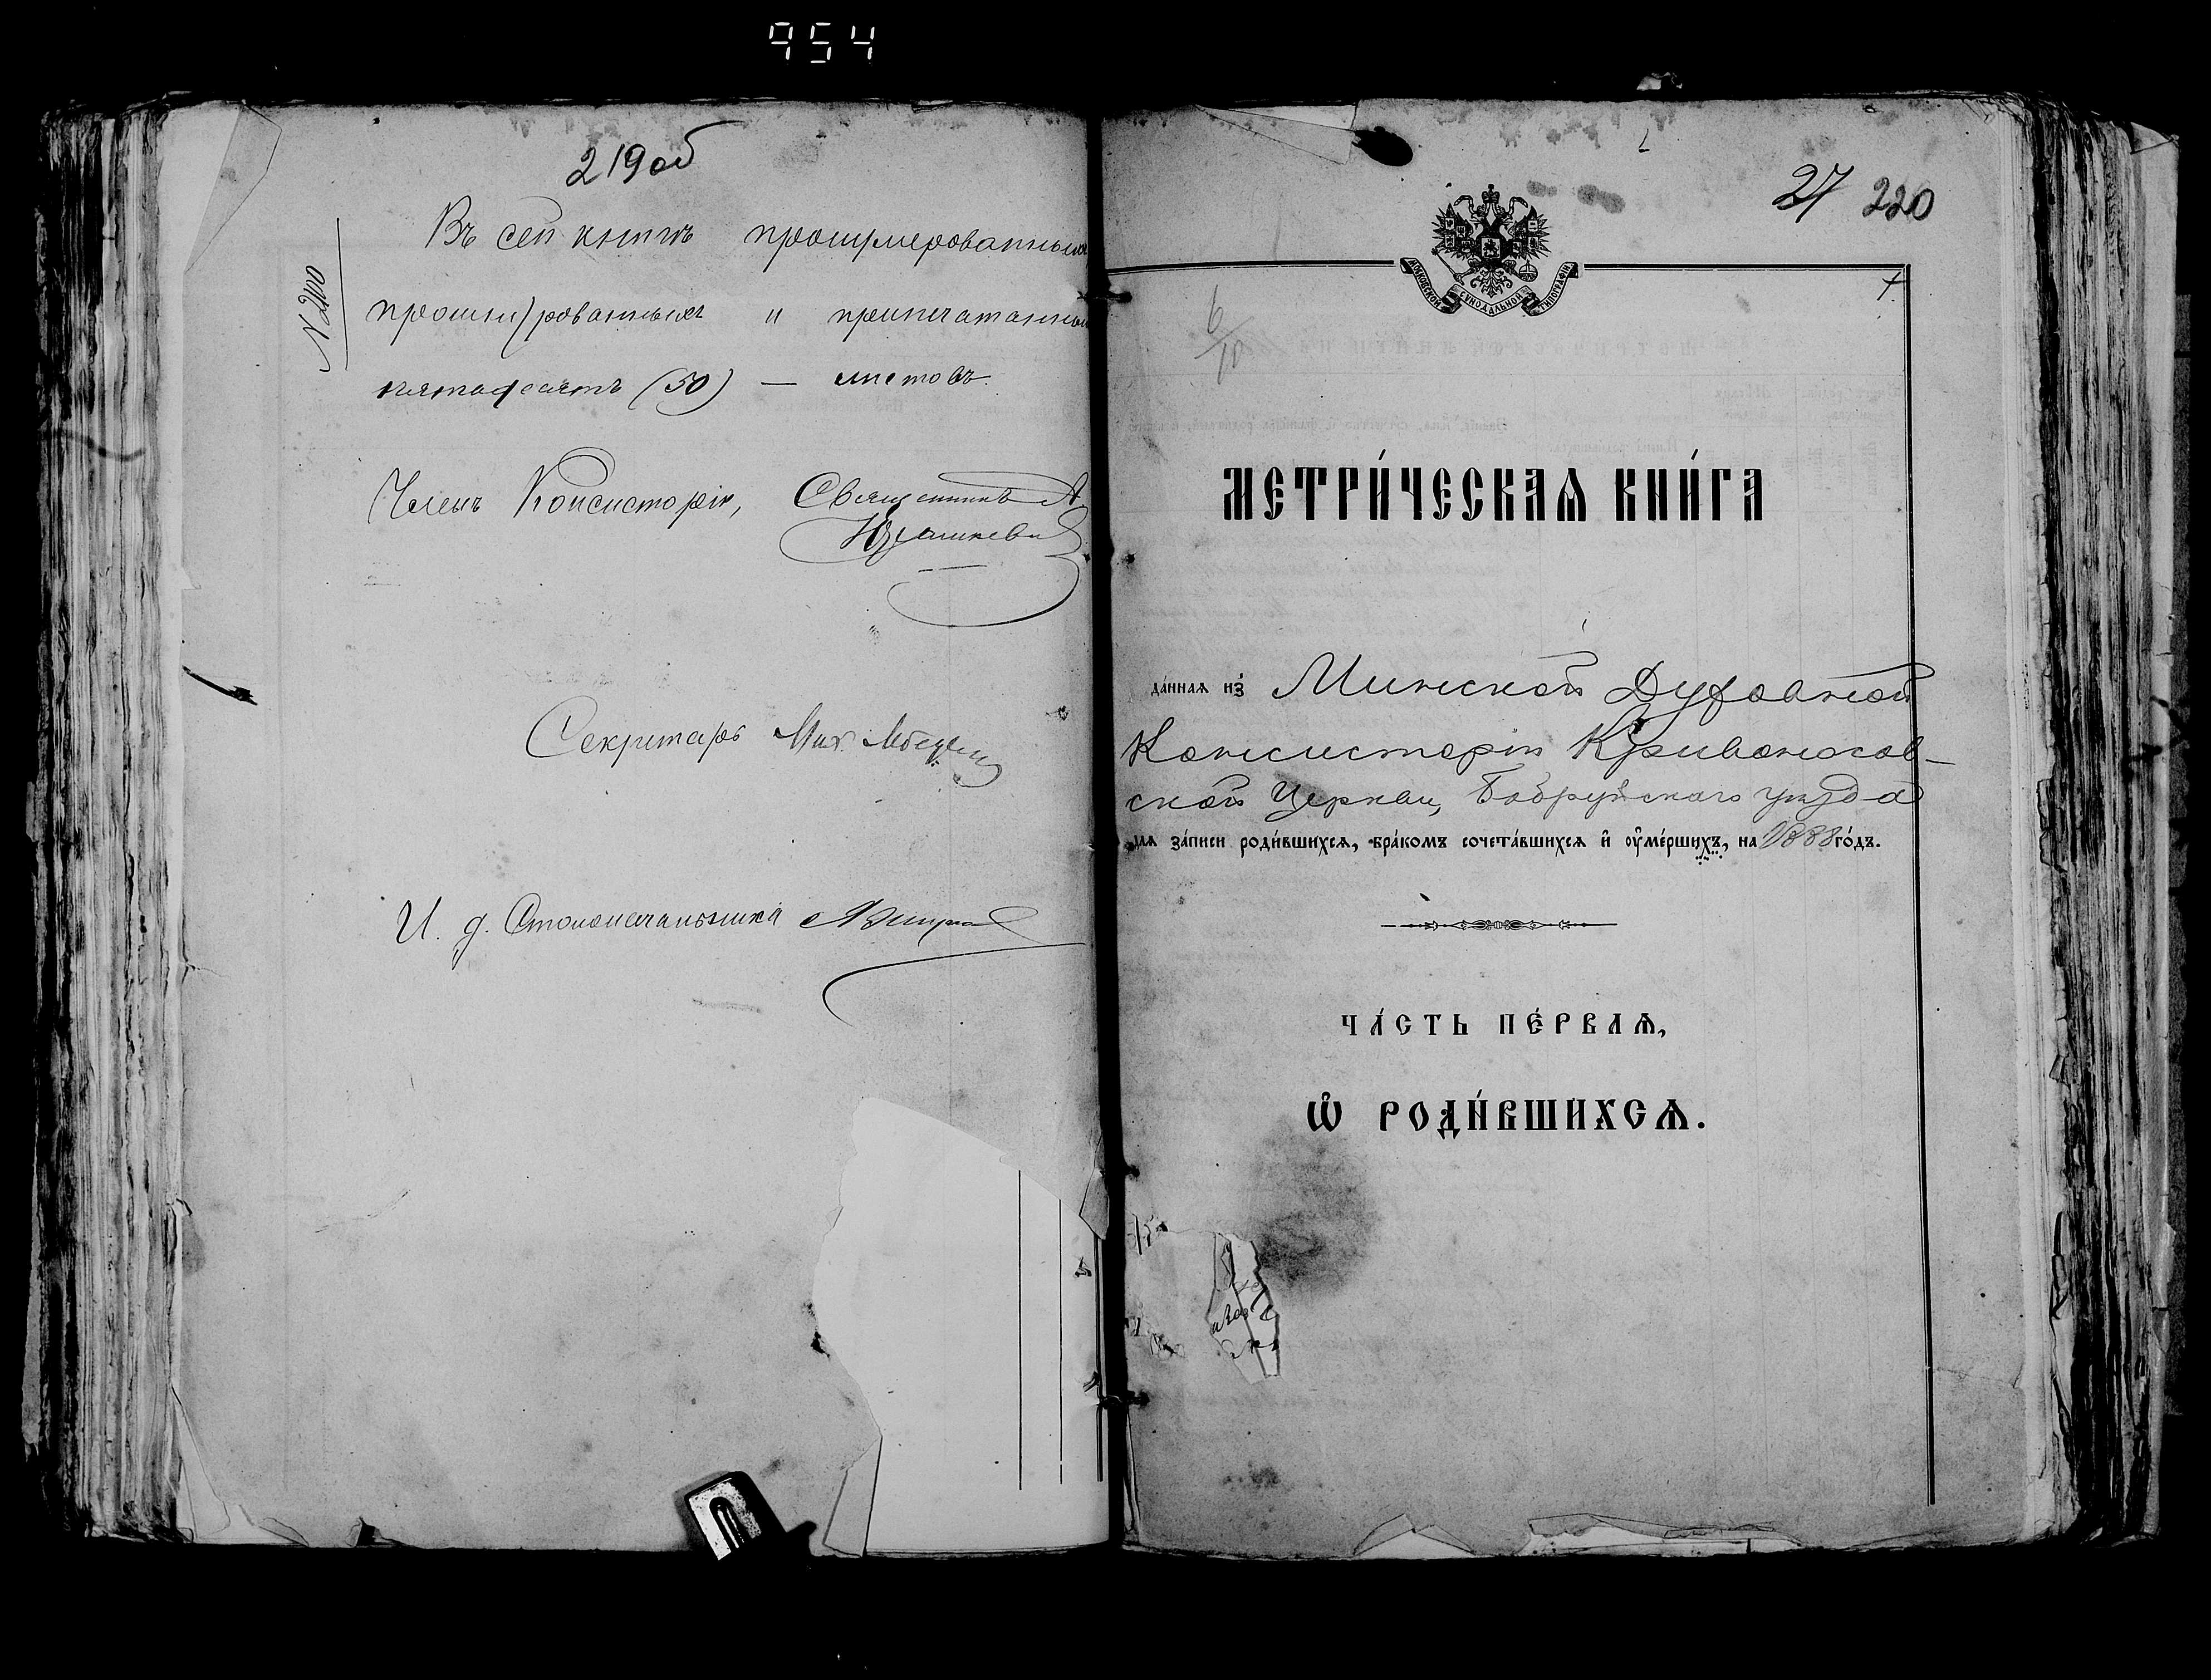 954
219об
№ 200
Въ сей книгѣ пронумерованныхъ
прошнурованныхъ и припечатанныхъ
пятьдесятъ (50) — листовъ.
Членъ Консисторіи, Священникъ А
Секретарь Мих.
И. д. Столоначальника
27 220
МОСКОВСКОЙ СѴНОДАЛЬНОЙ ТИПОГРАФІИ
6/10
МЕТРИ́ЧЕСКАѦ КНИ́ГА
да́ннаѧ из̾ Минской Духовной
Консисторіи Кривоносов-
ской Церкви, Бобруйскаго уѣзда
для за́писи роди́вшихсѧ, бра́комъ сочета́вшихсѧ и҆ ѹ҆ме́ршихъ, на 1888 го́дъ.
ЧА́СТЬ ПЕ́РВАѦ,
Ѽ РОДИ́ВШИХСѦ.